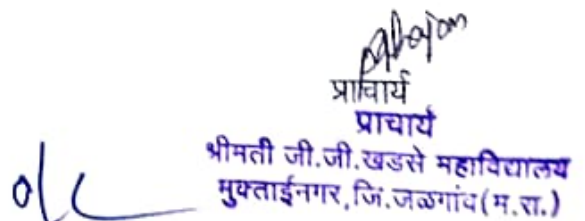 प्राचार्य
प्राचार्य
श्रीमती जी.जी.खडसे महाविद्यालय
मुक्ताईनगर,जि.जळगांव(म.रा.)
o/c